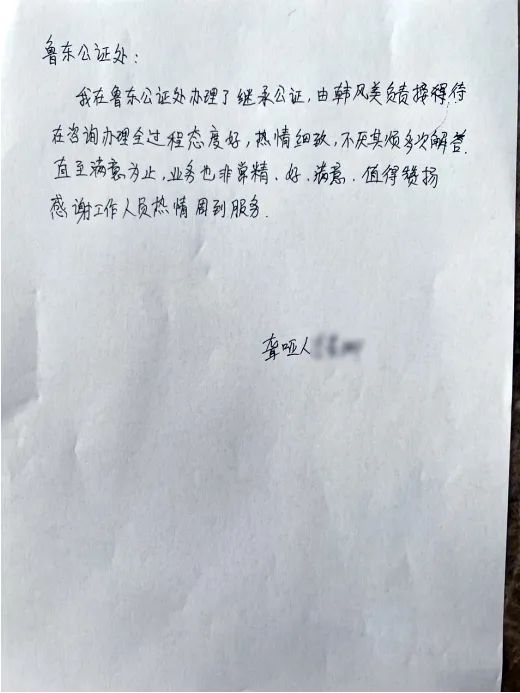 鲁东公证处：
我在鲁东公证处办理了继承公证，由韩风美负责接得待
在咨询办理全过程态度好，热情细致，不厌其烦多次解答.
直至满意为止，业务也非常精、好、满意、值得赞扬
感谢工作人员热情周到服务.
聋哑人